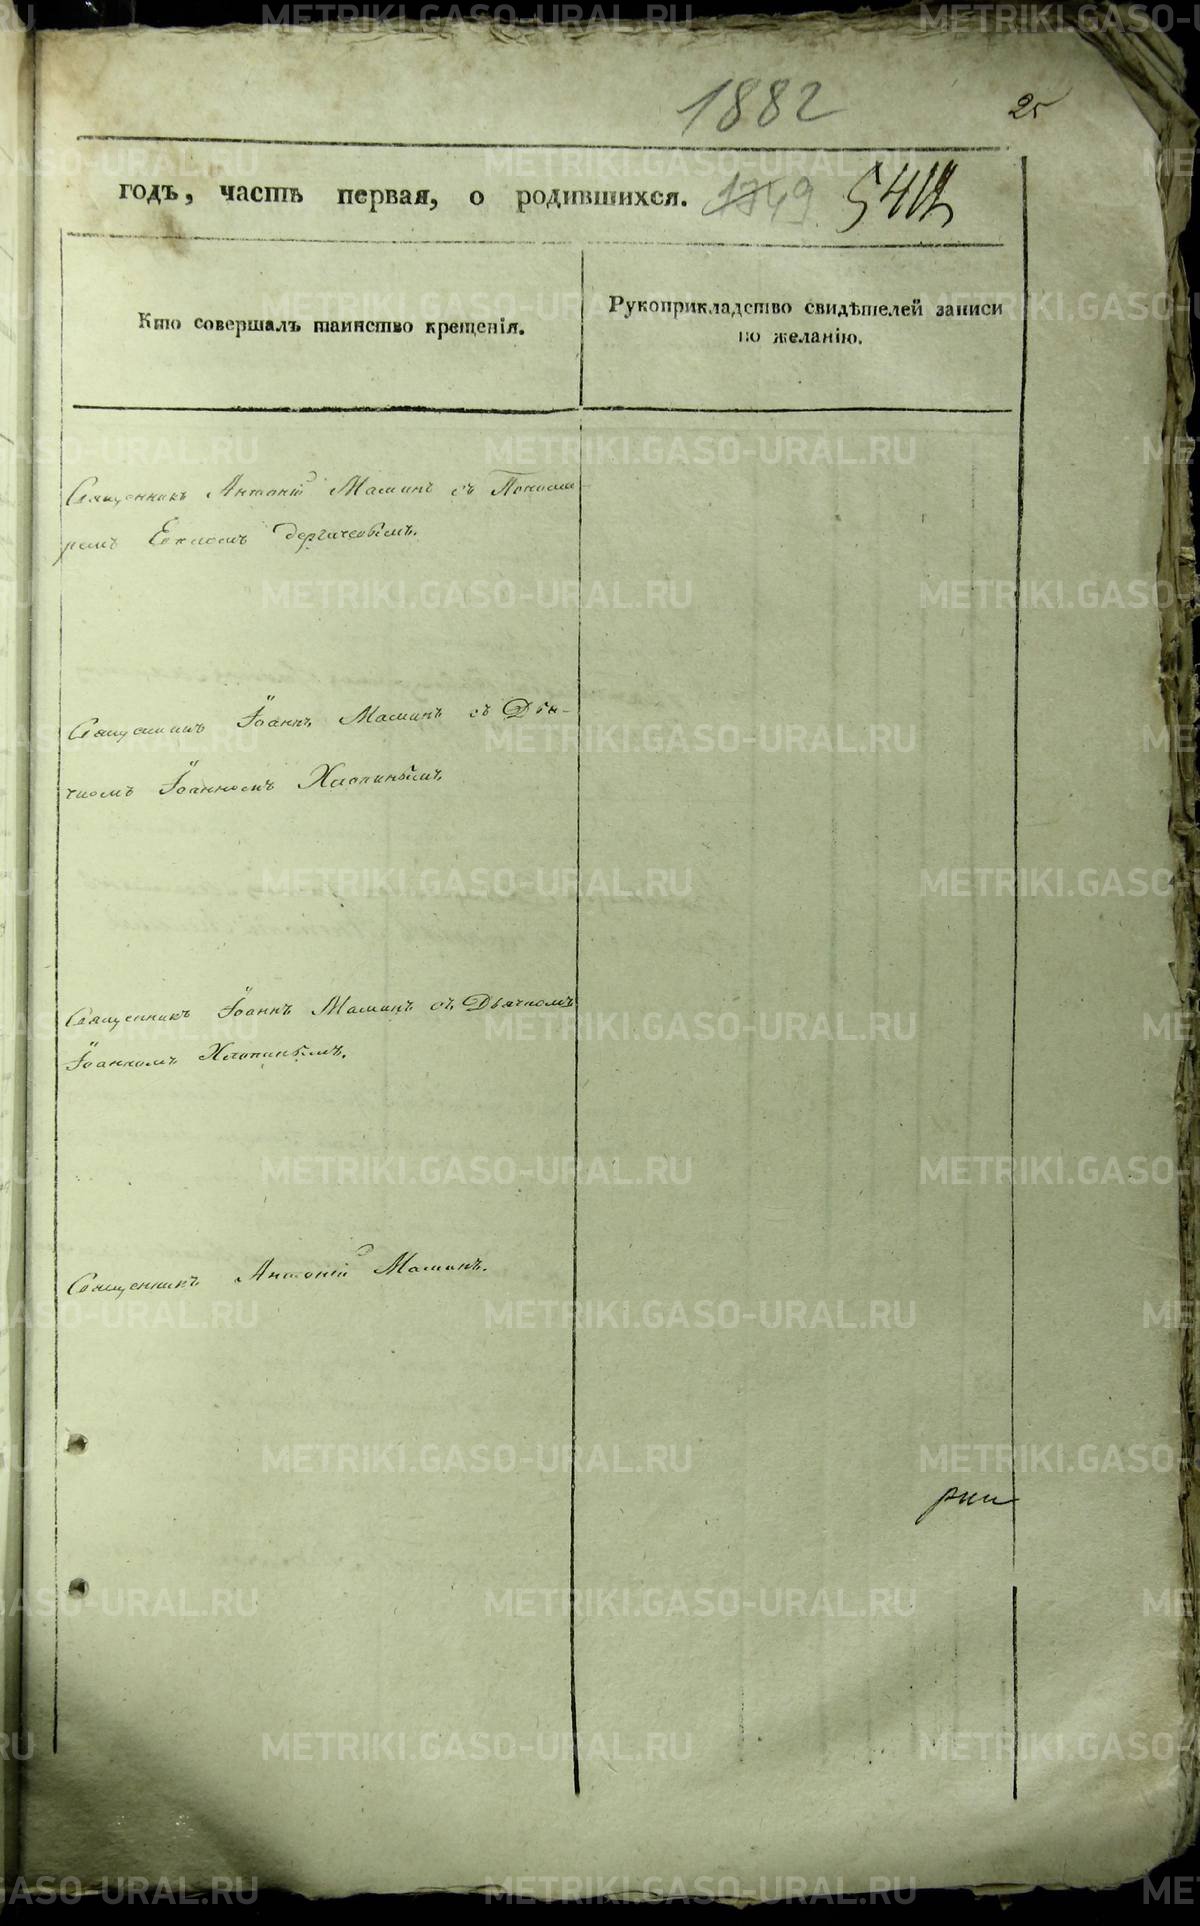 1882
25
годъ, часть первая, о родившихся. 1749
Кто совершалъ таинство крещенія.
Рукоприкладство свидѣтелей записи
по желанію.
Священникъ Антоній Маминъ съ Понома-
ремъ Дергачевымъ.
Священникъ Іоаннъ Маминъ съ Дья-
чкомъ Іоанномъ Хлопинымъ.
Священникъ Іоаннъ Маминъ съ Дьячкомъ
Іоанномъ Хлопинымъ.
Священникъ Антоній Маминъ.
METRIKI.GASO-URAL.RU